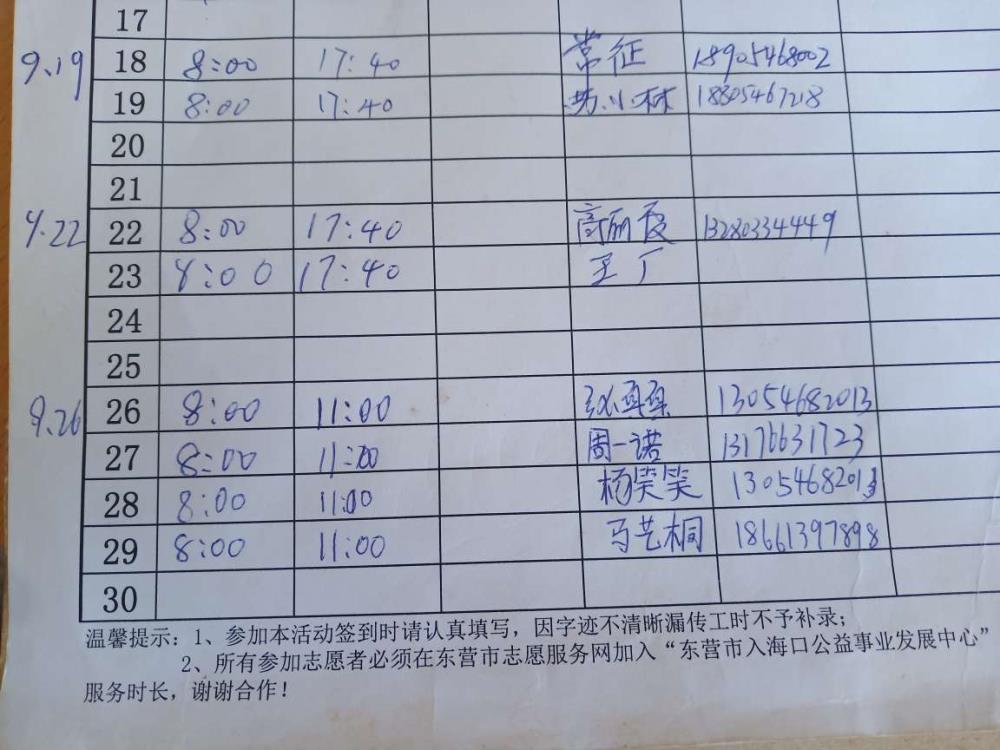 17
9.19 18 8:00 17:40 常征 18905468002
19 8:00 17:40 小林 18805467218
20
21
9.22 22 8:00 17:40 高丽霞 13280334449
23 8:00 17:40 王丁
24
25
9.26 26 8:00 11:00 13054682013
27 8:00 11:00 周一诺 13176631723
28 8:00 11:00 杨笑笑 13054682013
29 8:00 11:00 马艺桐 18661397898
30
温馨提示：1、参加本活动签到时请认真填写，因字迹不清晰漏传工时不予补录；
2、所有参加志愿者必须在东营市志愿服务网加入“东营市入海口公益事业发展中心”
服务时长，谢谢合作！